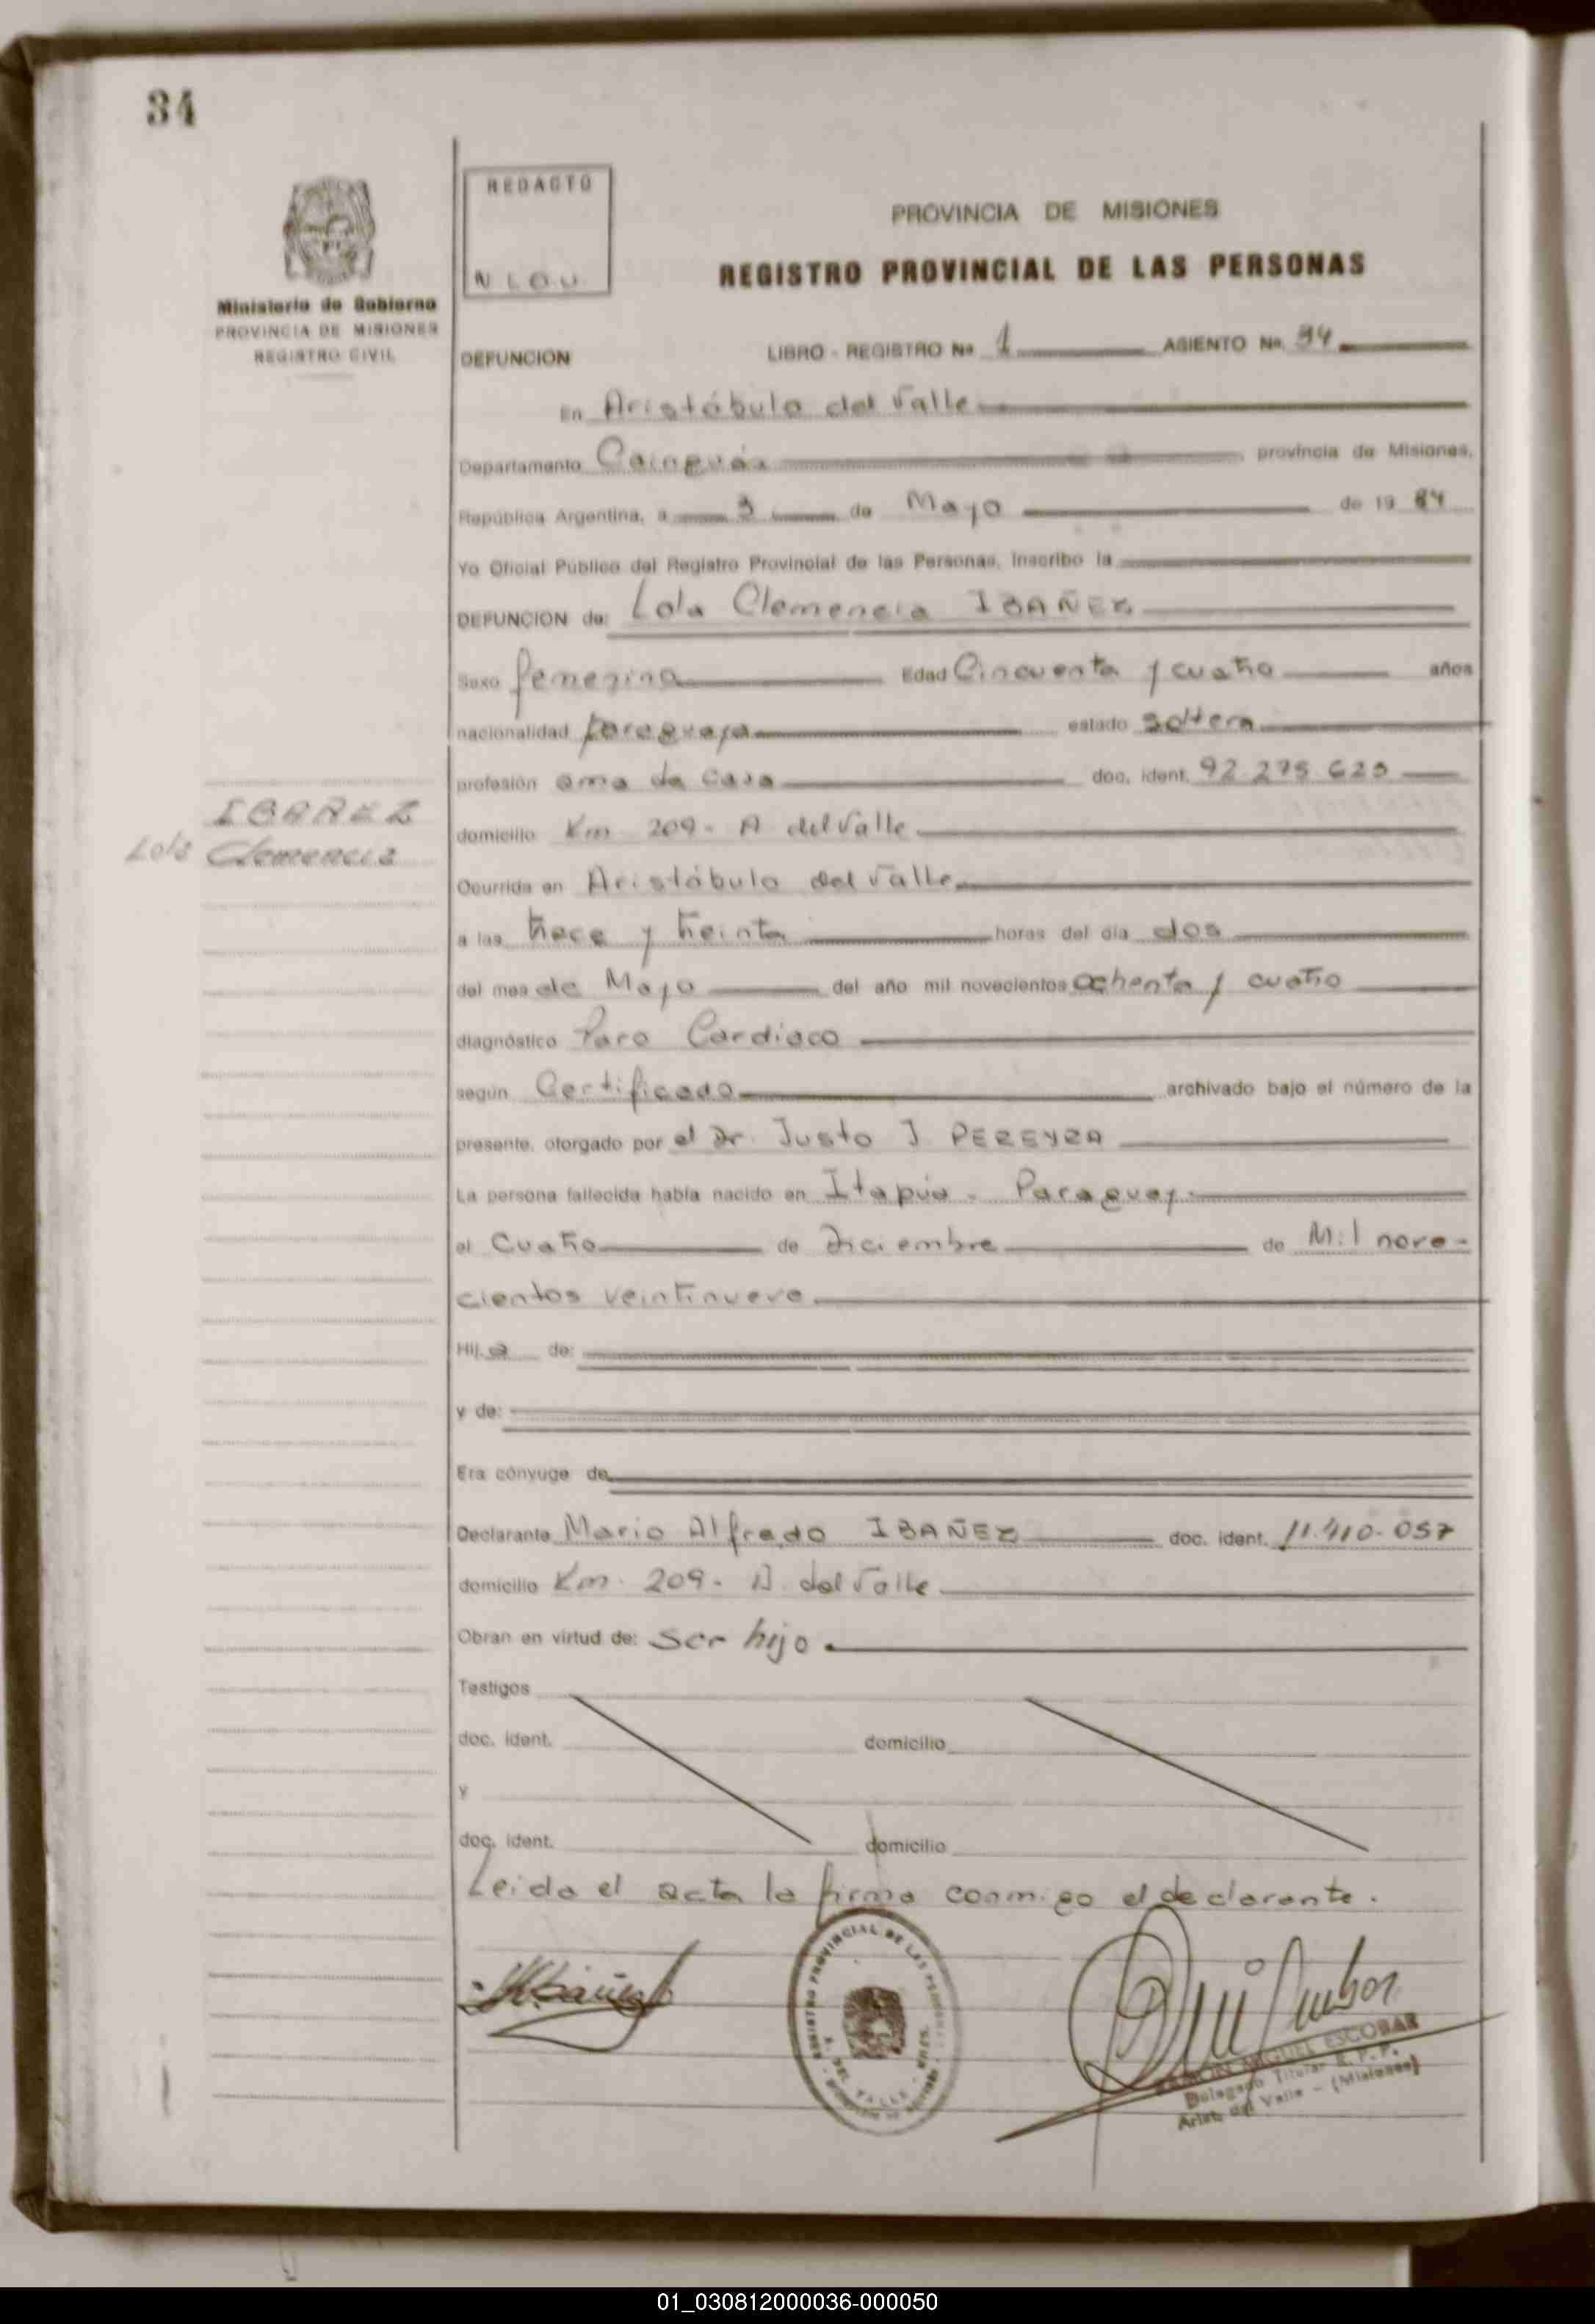 34
REDACTO
N L O U
PROVINCIA DE MISIONES
REGISTRO PROVINCIAL DE LAS PERSONAS
Ministerio de Gobierno
PROVINCIA DE MISIONES
REGISTRO CIVIL
DEFUNCION LIBRO - REGISTRO Nº 1 ASIENTO Nº. 34
En Aristóbulo del Valle
Departamento Cainguás provincia de Misiones,
República Argentina, a 3 de Mayo de 19 84
Yo Oficial Público del Registro Provincial de las Personas, inscribo la
DEFUNCION de: Lola Clemencia IBAÑEZ
Sexo femenino Edad Cincuenta y cuatro años
nacionalidad paraguaya estado soltera
profesión ama de casa doc. ident. 92.275.625
IBAÑEZ
Lola Clemencia
domicilio Km 209 - A del Valle
Ocurrida en Aristóbulo del Valle
a las trece y treinta horas del día dos
del mes de Mayo del año mil novecientos ochenta y cuatro
diagnóstico Paro Cardiaco
según Certificado archivado bajo el número de la
presente, otorgado por el Dr. Justo J PEREYRA
La persona fallecida había nacido en Itapúa - Paraguay
el Cuatro de Diciembre de Mil nove-
cientos veintinueve
Hij a de:
y de:
Era cónyuge de
Declarante Mario Alfredo IBAÑEZ doc. ident. 11.410.057
domicilio Km. 209 - A. del Valle
Obran en virtud de: Ser hijo
Testigos
doc. ident. domicilio
y
doc. ident. domicilio
Leida el acta la firma conmigo el declarante.
REGISTRO PROVINCIAL DE LAS PERSONAS
A. DEL VALLE - MNES.
RAMON MIGUEL ESCOBAR
Delegado Titular R. P. P.
Arist. del Valle - (Misiones)
01_030812000036-000050